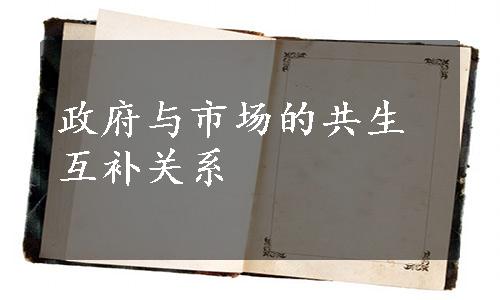 政府与市场的共生
互补关系